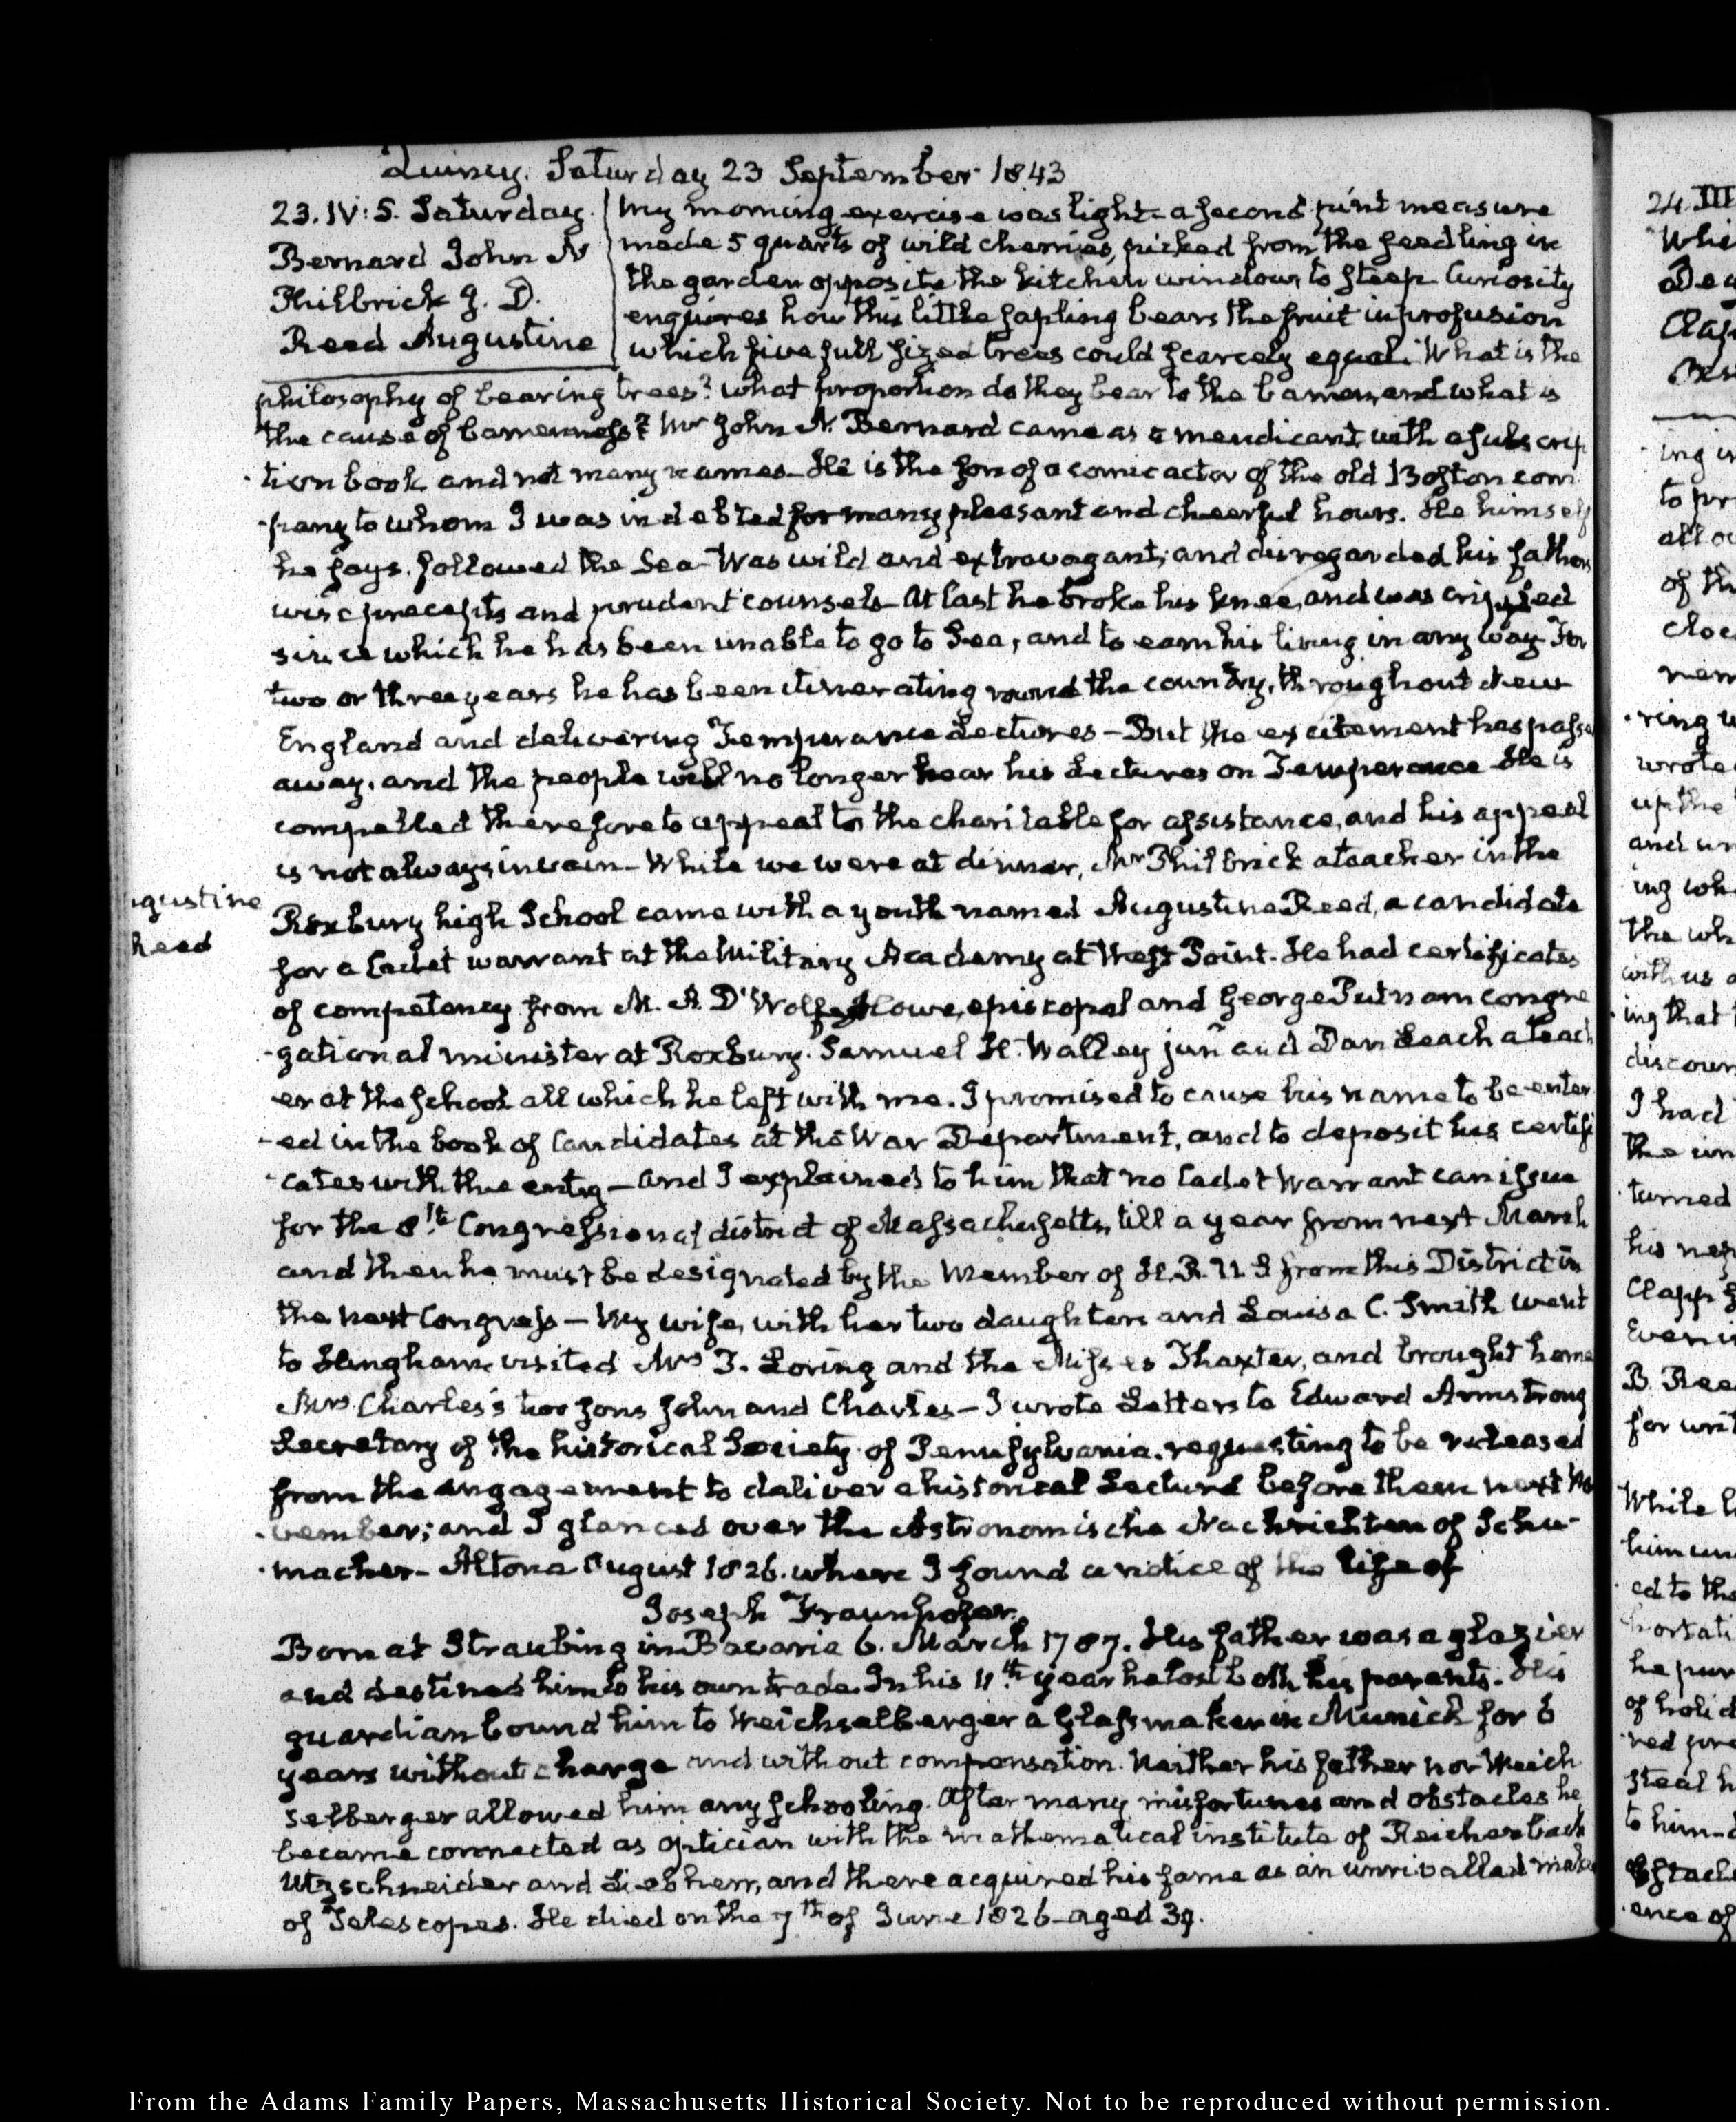 Quincy. Saturday 23 September 1843
23. IV: 5. Saturday.
Bernard John N
Philbrick J. D.
Reed Augustine
My morning exercise was light- a second pint measure
made 5 quarts of wild cherries, picked from the seedling in
the garden opposite the kitchen window, to steep Curiosity
enquires how this little sapling bears the fruit in profusion
which five full sized trees could scarcely equal. What is the
philosophy of bearing trees? what proportion do they bear to the barren, and what is
the cause of barrenness? Mr John N. Bernard came as a mendicant with a subscrip
tion book and not many names- He is the son of a comic actor of the old Boston com
-pany to whom I was indebted for many pleasant and cheerful hours. He himself
he says, followed the Sea- Was wild and extravagant; and disregarded his fathers
wise precepts and prudent counsels- At last he broke his knee, and was crippled
since which he has been unable to go to Sea, and to earn his living in any way For
two or three years he has been itinerating round the country, throughout New
England and delivering Temperance Lectures - But the excitement has passed
away, and the people will no longer hear his Lectures on Temperance He is
compelled therefore to appeal to the charitable for assistance, and his appeal
is not always in vain- While we were at dinner, Mr Philbrick a teacher in the
Augustine
Reed
Roxbury high School came with a youth named Augustine Reed, a candidate
for a Cadet warrant at the Military Academy at West Point. He had certificates
of competency from M. A. D'Wolfe Howe, episcopal and George Putnam congre
-gational minister at Roxbury. Samuel H. Walley junr and Dan Leach a teach
er at the school all which he left with me. I promised to cause his name to be enter
-ed in the book of Candidates at the War Department, and to deposit his certifi
-cates with the entry - and I explained to him that no Cadet Warrant can issue
for the 8th Congressional district of Massachusetts, till a year from next March
and then he must be designated by the Member of H.R.U.S from this District in
the next Congress - My wife, with her two daughters and Louisa C. Smith went
to Hingham, visited Mrs T. Loring and the Misses Thaxter, and brought home
Mrs Charles's two sons John and Charles - I wrote Letters to Edward Armstrong
Secretary of the historical Society of Pennsylvania, requesting to be released
from the engagement to deliver a historical Lecture before them next No
-vember; and I glanced over the Astronomische Nachrichten of Schu-
-macher- Altona August 1826. where I found a notice of the life of
Joseph Fraunhofer.
Born at Straubing in Bavaria 6. March 1787. His father was a glazier
and destined him to his own trade. In his 11th year he lost both his parents. His
guardian bound him to Weichselberger a Glass maker in Munich for 6
years without charge and without compensation. Neither his father nor Weich
selberger allowed him any schooling. After many misfortunes and obstacles he
became connected as optician with the mathematical institute of Reichenbach
Utzschneider and Liebherr, and there acquired his fame as an unrivalled maker
of Telescopes. He died on the 7th of June 1826- aged 39.
24. III
Whe
Dea
Clap
ing in
to pr
allo
of th
cloc
nem
-ring w
wrote
up the
and un
ing wh
the wh
with us a
ing that
discour
I had
the un
turned
his nep
Clapp
Eveni
B. Ree
for writ
While
him un
ed to th
he pur
of holid
red pre
steal h
to him-
ence of
From the Adams Family Papers, Massachusetts Historical Society. Not to be reproduced without permission.